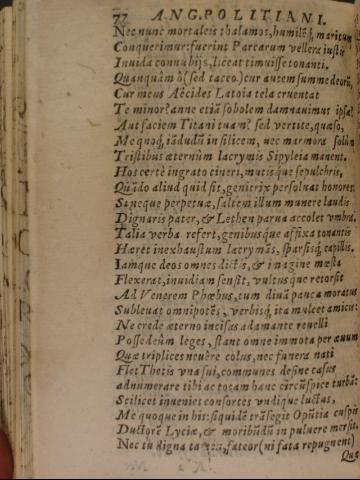 77 ANG. POLITIANI.
Nec nunc mortaleis thalamos, humilēq́; maritum
Conquerimur: fuerint Parcarum vellera iusta
Inuida connubijs, liceat timuisse tonanti.
Quanquàm ô (sed taceo.) cur autem summe deorū,
Cur meus Aëcides Latoia tela cruentat
Te minor? anne etiā sobolem damnauimus ipsā?
Aut faciem Titani tuam? sed vertite, quæso,
Me quoq́;, iādudū in silicem, nec marmora solūm
Tristibus æternùm lacrymis Sipyleia manent.
Hos certè ingrato cineri, mutisque sepulchris,
Quādo aliud quid sit, genitrix persoluat honores
Sineque perpetuæ, saltem illum munere laudis
Dignaris pater, & Lethen parua accolet vmbra.
Talia verba refert, genibusque affixa tonantis
Hæret inexhaustum lacrymās, sparsisq́; capillis.
Iamque deos omnes dictis, & imagine mæsta
Flexerat, inuidiam sensit, vultusque retorsit
Ad Venerem Phœbus, tum diuā pauca moratus
Subleuat omnipotēs, verbisq́; ita mulcet amicis:
Ne crede æterno incisas adamante reuelli
Posse deûm leges, stant omne immota per æuum
Quæ triplices neuêre colus, nec funera nati
Flet Thetis vna sui, communes desine casus
adnumerare tibi ac totam hanc circūspice turbā:
Scilicet inuenies consortes vndique luctus,
Me quoque in his: siquidē trāsegit Opūtia cuspis
Ductorē Lyciæ, & moribūdū in puluere mersit.
Nec tu digna fateor (ni fata repugnent)
Quæ